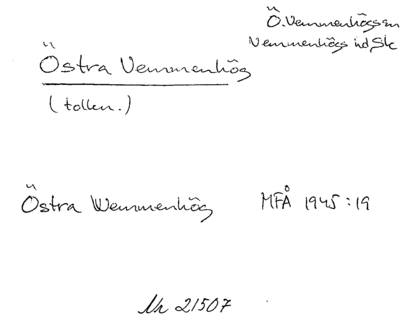 Ö. Vemmenhögs sn
Vemmenhögs hd Sk
Östra Vemmenhög
(tollen.)
Östra Wemmenhög MFÅ 1945:19
Nr 21507